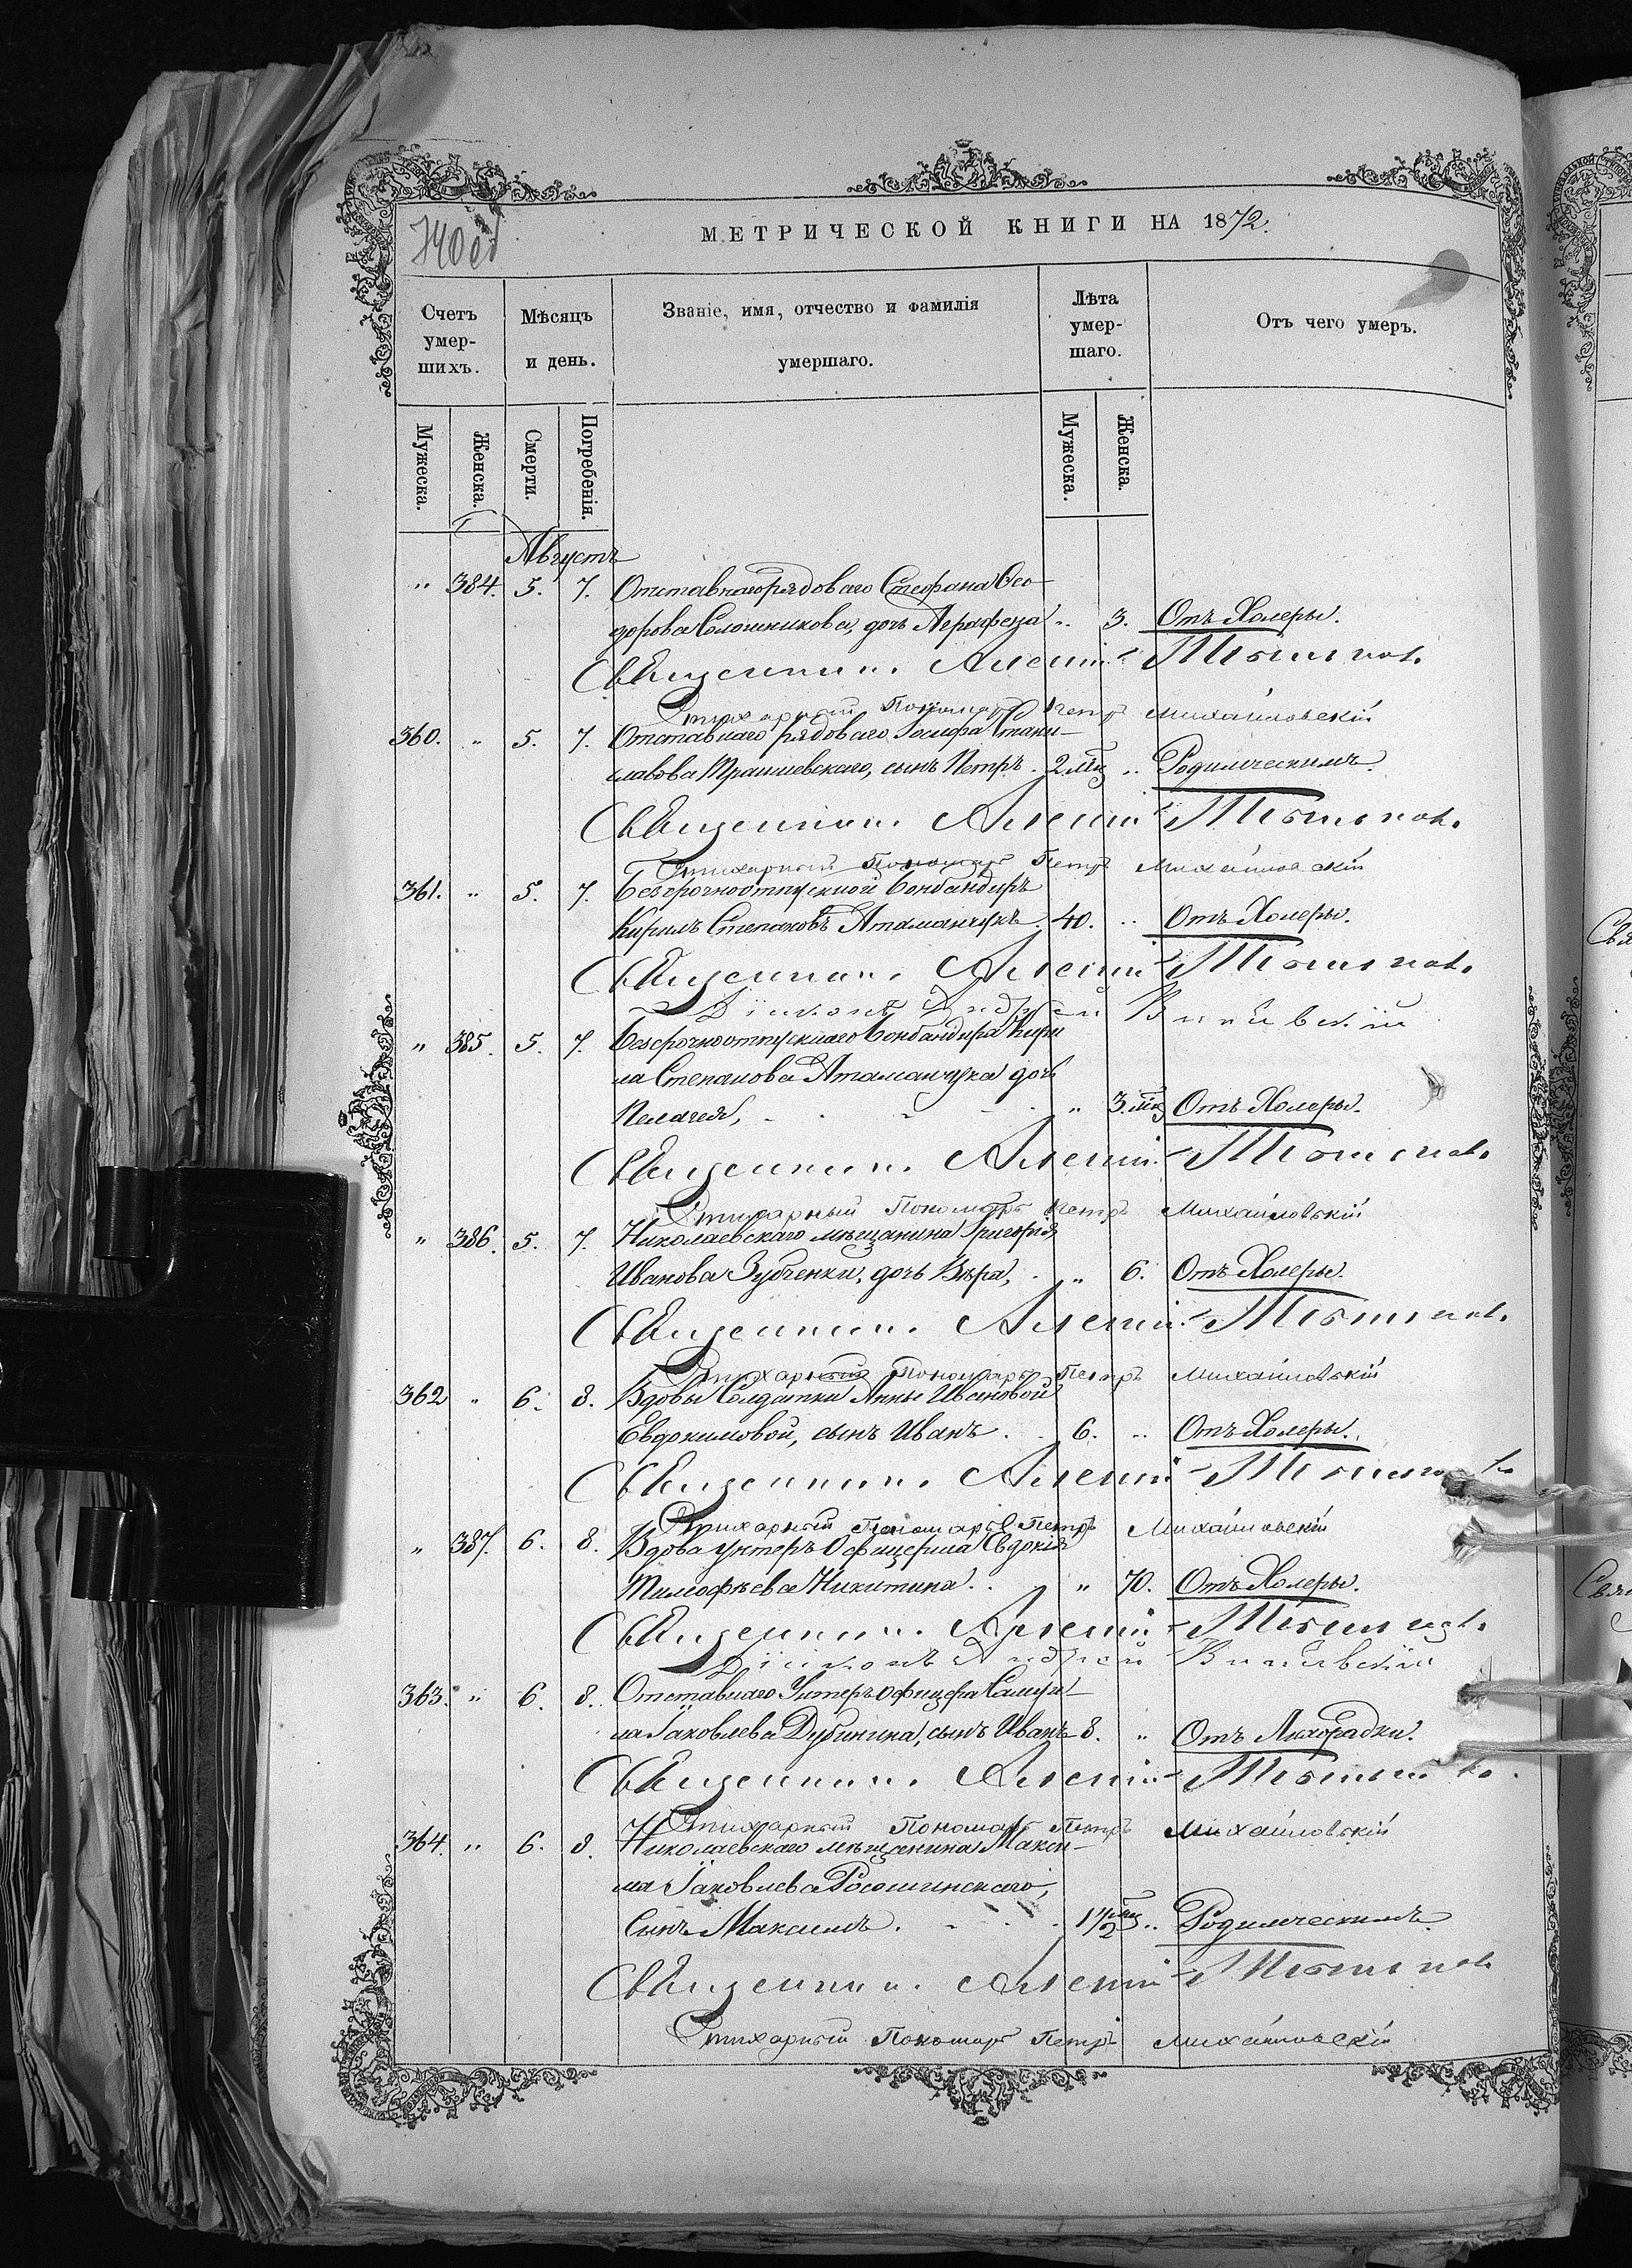 740об
МЕТРИЧЕСКОЙ КНИГИ НА 1872.
Счетъ умер-шихъ.
Мѣсяцъ и день.
Званіе, имя, отчество и фамилія умершаго.
Лѣта умер-шаго.
Отъ чего умеръ.
Мужеска.
Женска.
Смерти.
Погребенія.
Мужеска.
Женска.
Августъ
" 384. 5. 7. Отставнаго рядоваго Стефана Ѳео-
дорова Сапожникова, дочь Аграфена " 3. Отъ Холеры.
Священник Алексій
Стихарный Пономарь Петръ Михайловскій
360. " 5. 7. Отставнаго рядоваго Іосифа Стани-
славова сынъ Петръ. 2 мц " Родимческимъ.
Священник Алексій
Стихарный Пономарь Петръ Михайловскій
361. " 5. 7. Безсрочноотпускной Бонбандиръ
Кирилъ Степановъ Атаманчукъ. 40. " Отъ Холеры.
Священник Алексій
Діаконъ Андрей
" 385. 5. 7. Безсрочноотпускнаго Бонбандира Кири
ла Степанова Атаманчука дочь
Пелагея, " 3 мц Отъ Холеры.
Священник Алексій
Стихарный Пономарь Петръ Михайловскій
" 386. 5. 7. Николаевскаго мѣщанина Григорія
Иванова Зубченки, дочь Вѣра, " 6. Отъ Холеры.
Священник Алексій
Стихарный Пономарь Петръ Михайловскій
362 " 6. 8. Вдовы Солдатки Анны Ивановой
Евдокимовой, сынъ Иванъ. 6. " Отъ Холеры.
Священник Алексій
Стихарный Пономарь Петръ Михайловскій
" 387. 6. 8. Вдова унтеръ Офицерша Евдокія
Тимофѣева Никитина. " 70. Отъ Холеры.
Священник Алексій
Діаконъ Андрей
363. " 6. 8. Отставнаго Унтеръ офицера Самуи-
ла Іаковлева Дубинина, сынъ Иванъ 8. " Отъ Лихорадки.
Священник Алексій
Стихарный Пономарь Петръ Михайловскій
364. " 6. 8. Николаевскаго мѣщанина Макси-
ма Іаковлева Росошинскаго,
Сынъ Максимъ. 1 1/2 мц " Родимческимъ.
Священник Алексій
Стихарный Пономарь Петръ Михайловскій